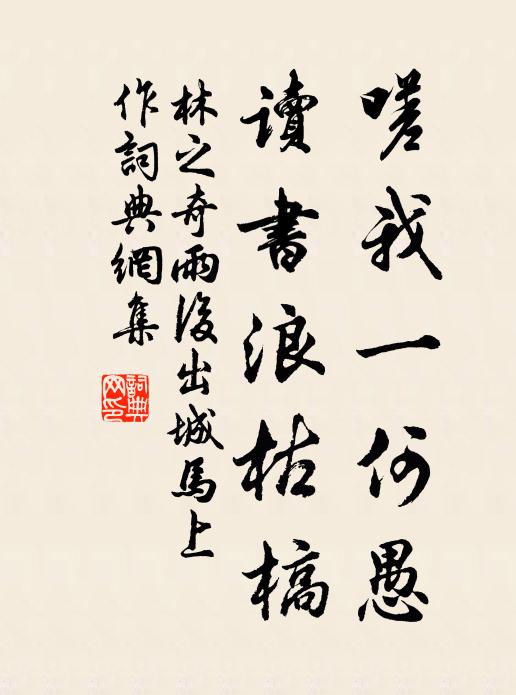 嗟我一何愚
讀書浪枯槁
林之奇雨後出城馬上
作詞典網集
詞典網印